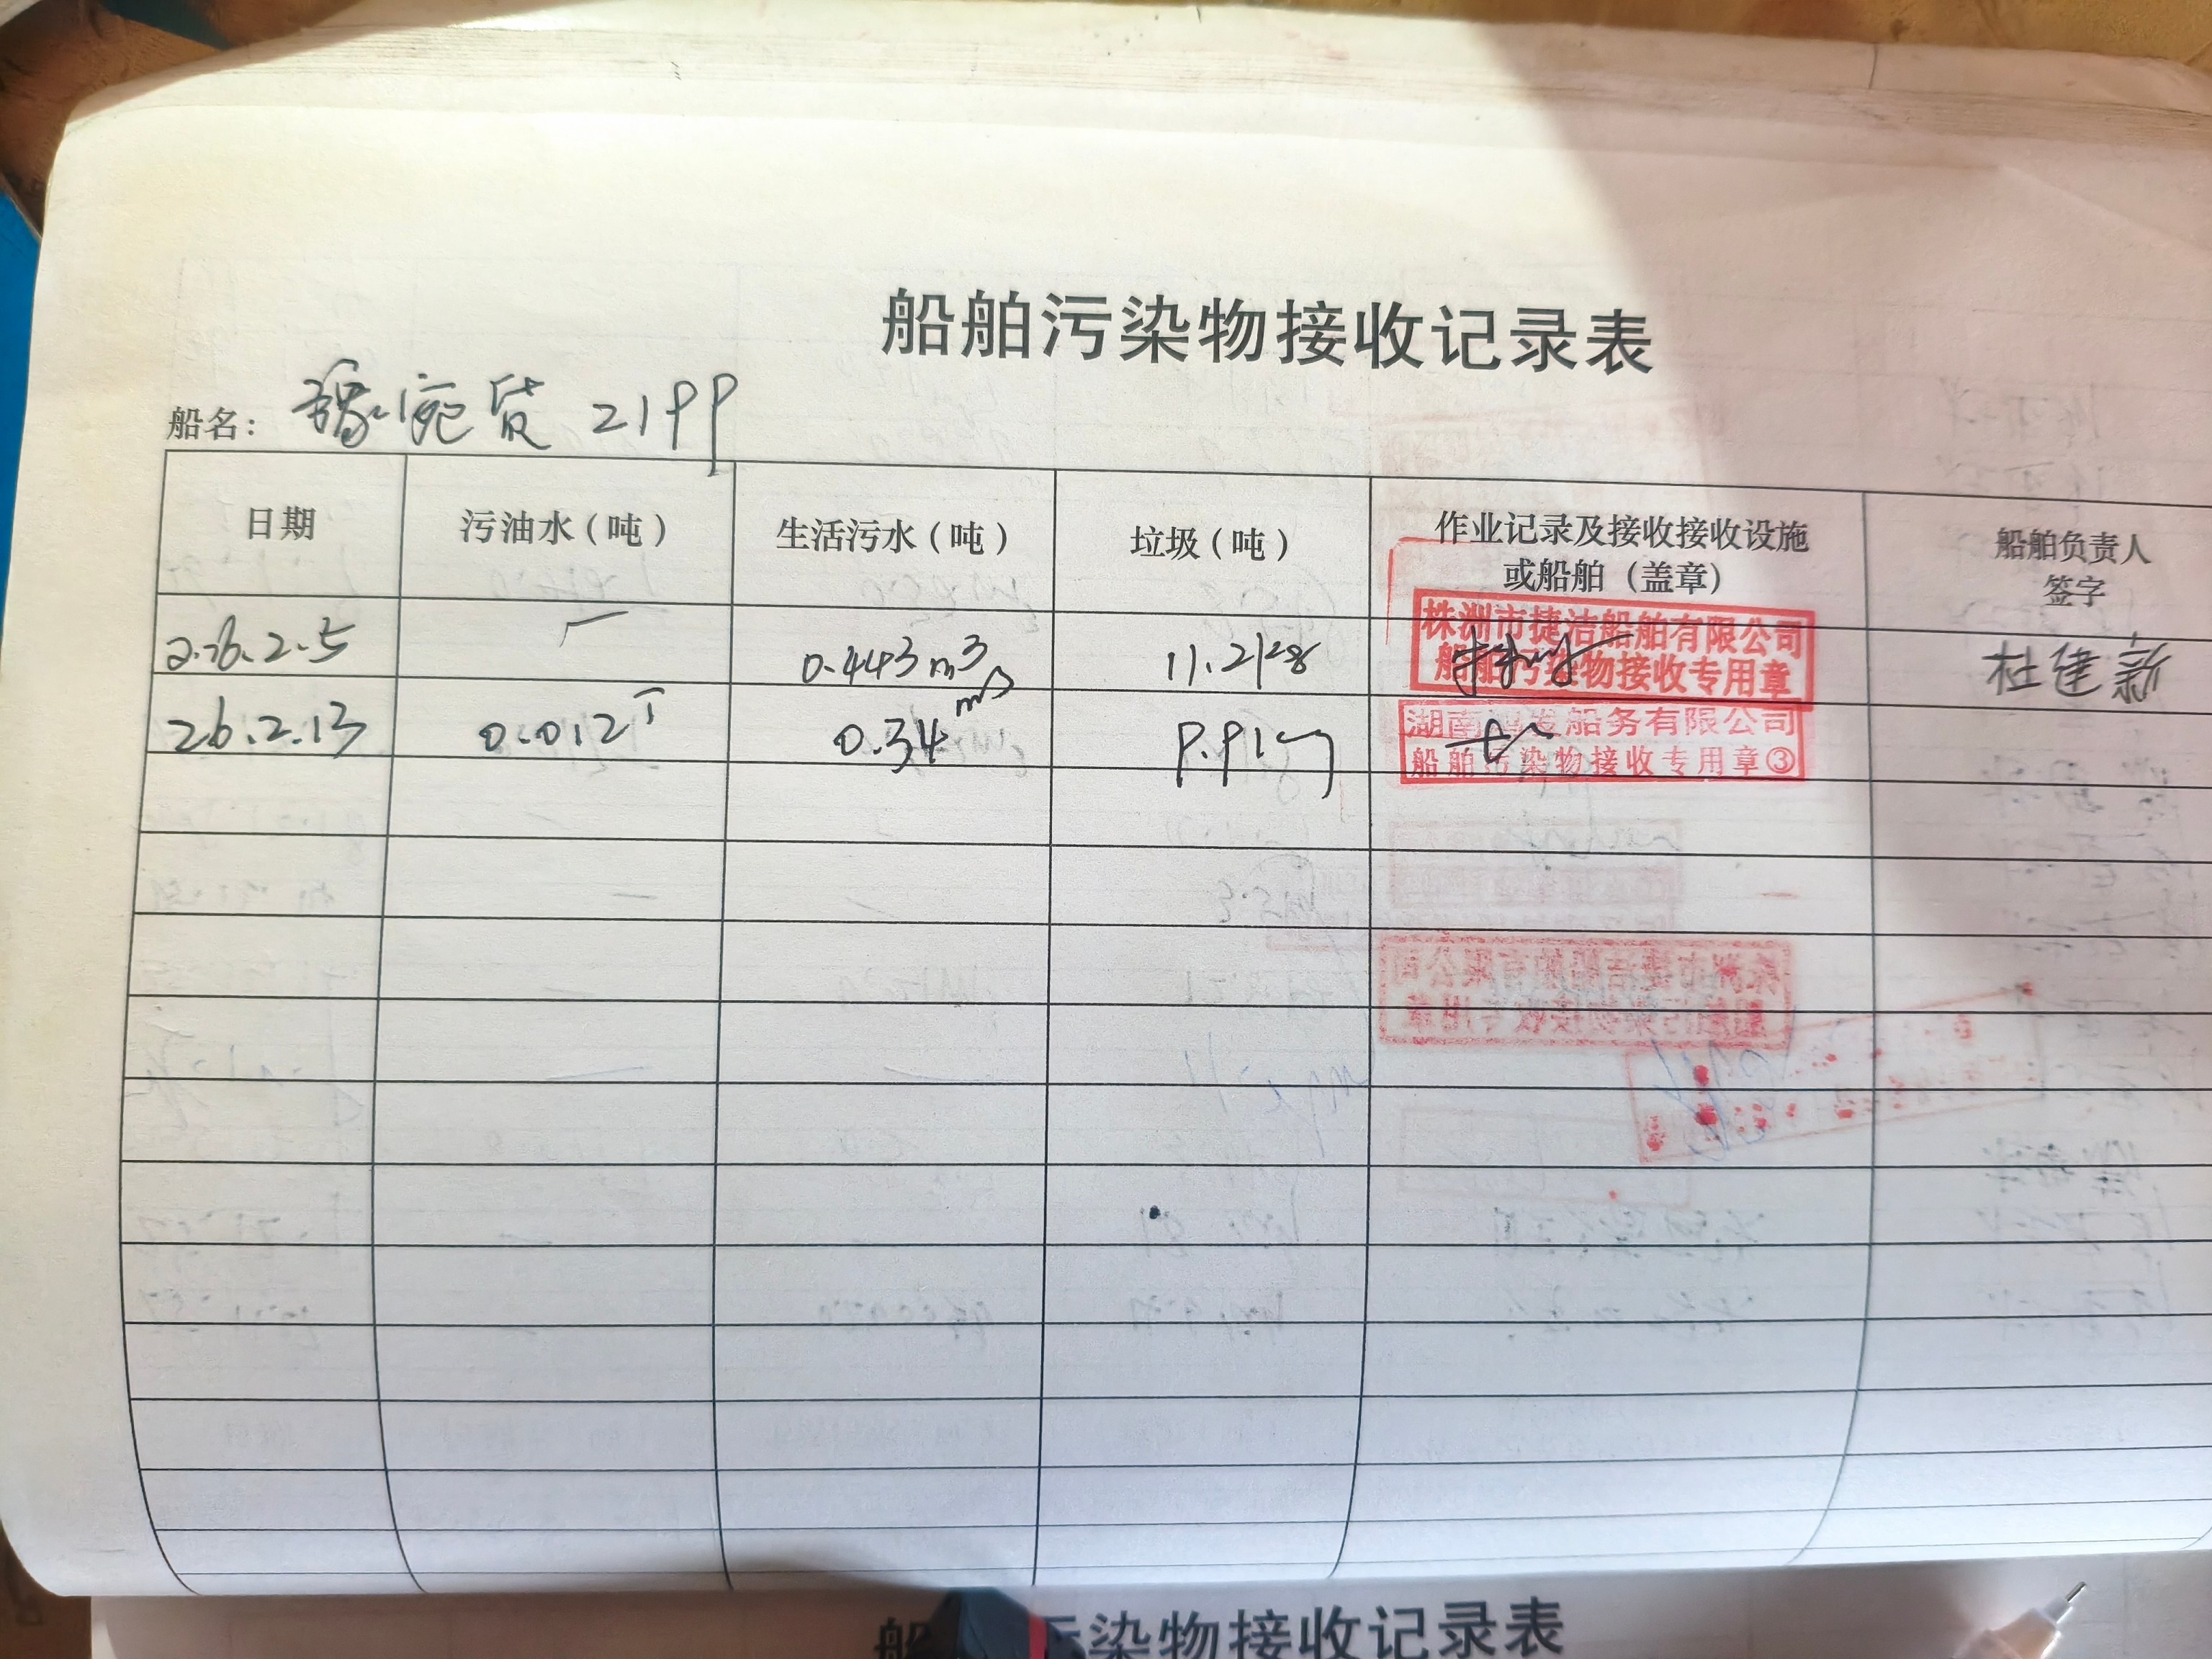 船舶污染物接收记录表
船名: 豫宛货 2199
日期 污油水(吨) 生活污水(吨) 垃圾(吨) 作业记录及接收接收设施或船舶(盖章) 船舶负责人签字
26.2.5 一 0.443m³ 11.2kg 株洲市捷洁船舶有限公司 船舶污染物接收专用章 杜建新
26.2.13 0.012T 0.34m³ 9.91kg 湖南 发船务有限公司 船舶污染物接收专用章③
船 污染物接收记录表